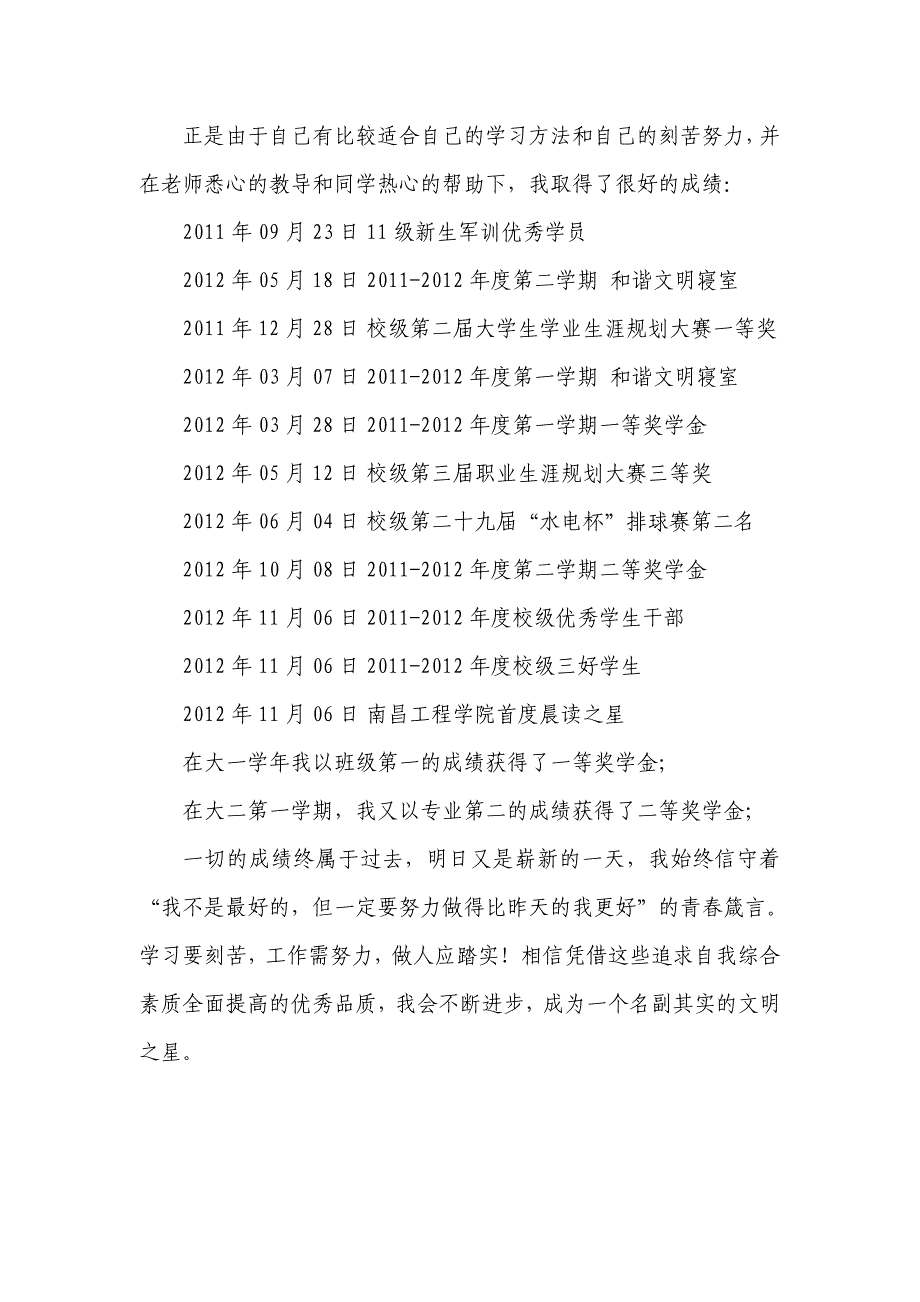 正是由于自己有比较适合自己的学习方法和自己的刻苦努力，并
在老师悉心的教导和同学热心的帮助下，我取得了很好的成绩：
2011 年 09 月 23 日 11 级新生军训优秀学员
2012 年 05 月 18 日 2011-2012 年度第二学期 和谐文明寝室
2011 年 12 月 28 日 校级第二届大学生学业生涯规划大赛一等奖
2012 年 03 月 07 日 2011-2012 年度第一学期 和谐文明寝室
2012 年 03 月 28 日 2011-2012 年度第一学期一等奖学金
2012 年 05 月 12 日 校级第三届职业生涯规划大赛三等奖
2012 年 06 月 04 日 校级第二十九届“水电杯”排球赛第二名
2012 年 10 月 08 日 2011-2012 年度第二学期二等奖学金
2012 年 11 月 06 日 2011-2012 年度校级优秀学生干部
2012 年 11 月 06 日 2011-2012 年度校级三好学生
2012 年 11 月 06 日 南昌工程学院首度晨读之星
在大一学年我以班级第一的成绩获得了一等奖学金；
在大二第一学期，我又以专业第二的成绩获得了二等奖学金；
一切的成绩终属于过去，明日又是崭新的一天，我始终信守着
“我不是最好的，但一定要努力做得比昨天的我更好”的青春箴言。
学习要刻苦，工作需努力，做人应踏实！相信凭借这些追求自我综合
素质全面提高的优秀品质，我会不断进步，成为一个名副其实的文明
之星。